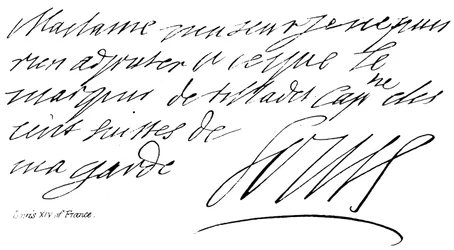 Madame ma seur je ne puis
rien adjouter a ce que le
marquis de tilladet Cap^ne des
cent suisses de
ma garde
Louis
Louis XIV of France.